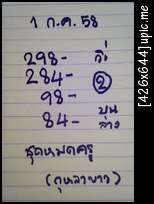 1 ก.ค. 58
298- วิ่
284- ②
98- บน
84- ล่าง
ชุดหมดครู
(กุหลาบขาว)
[426x644]upic.me